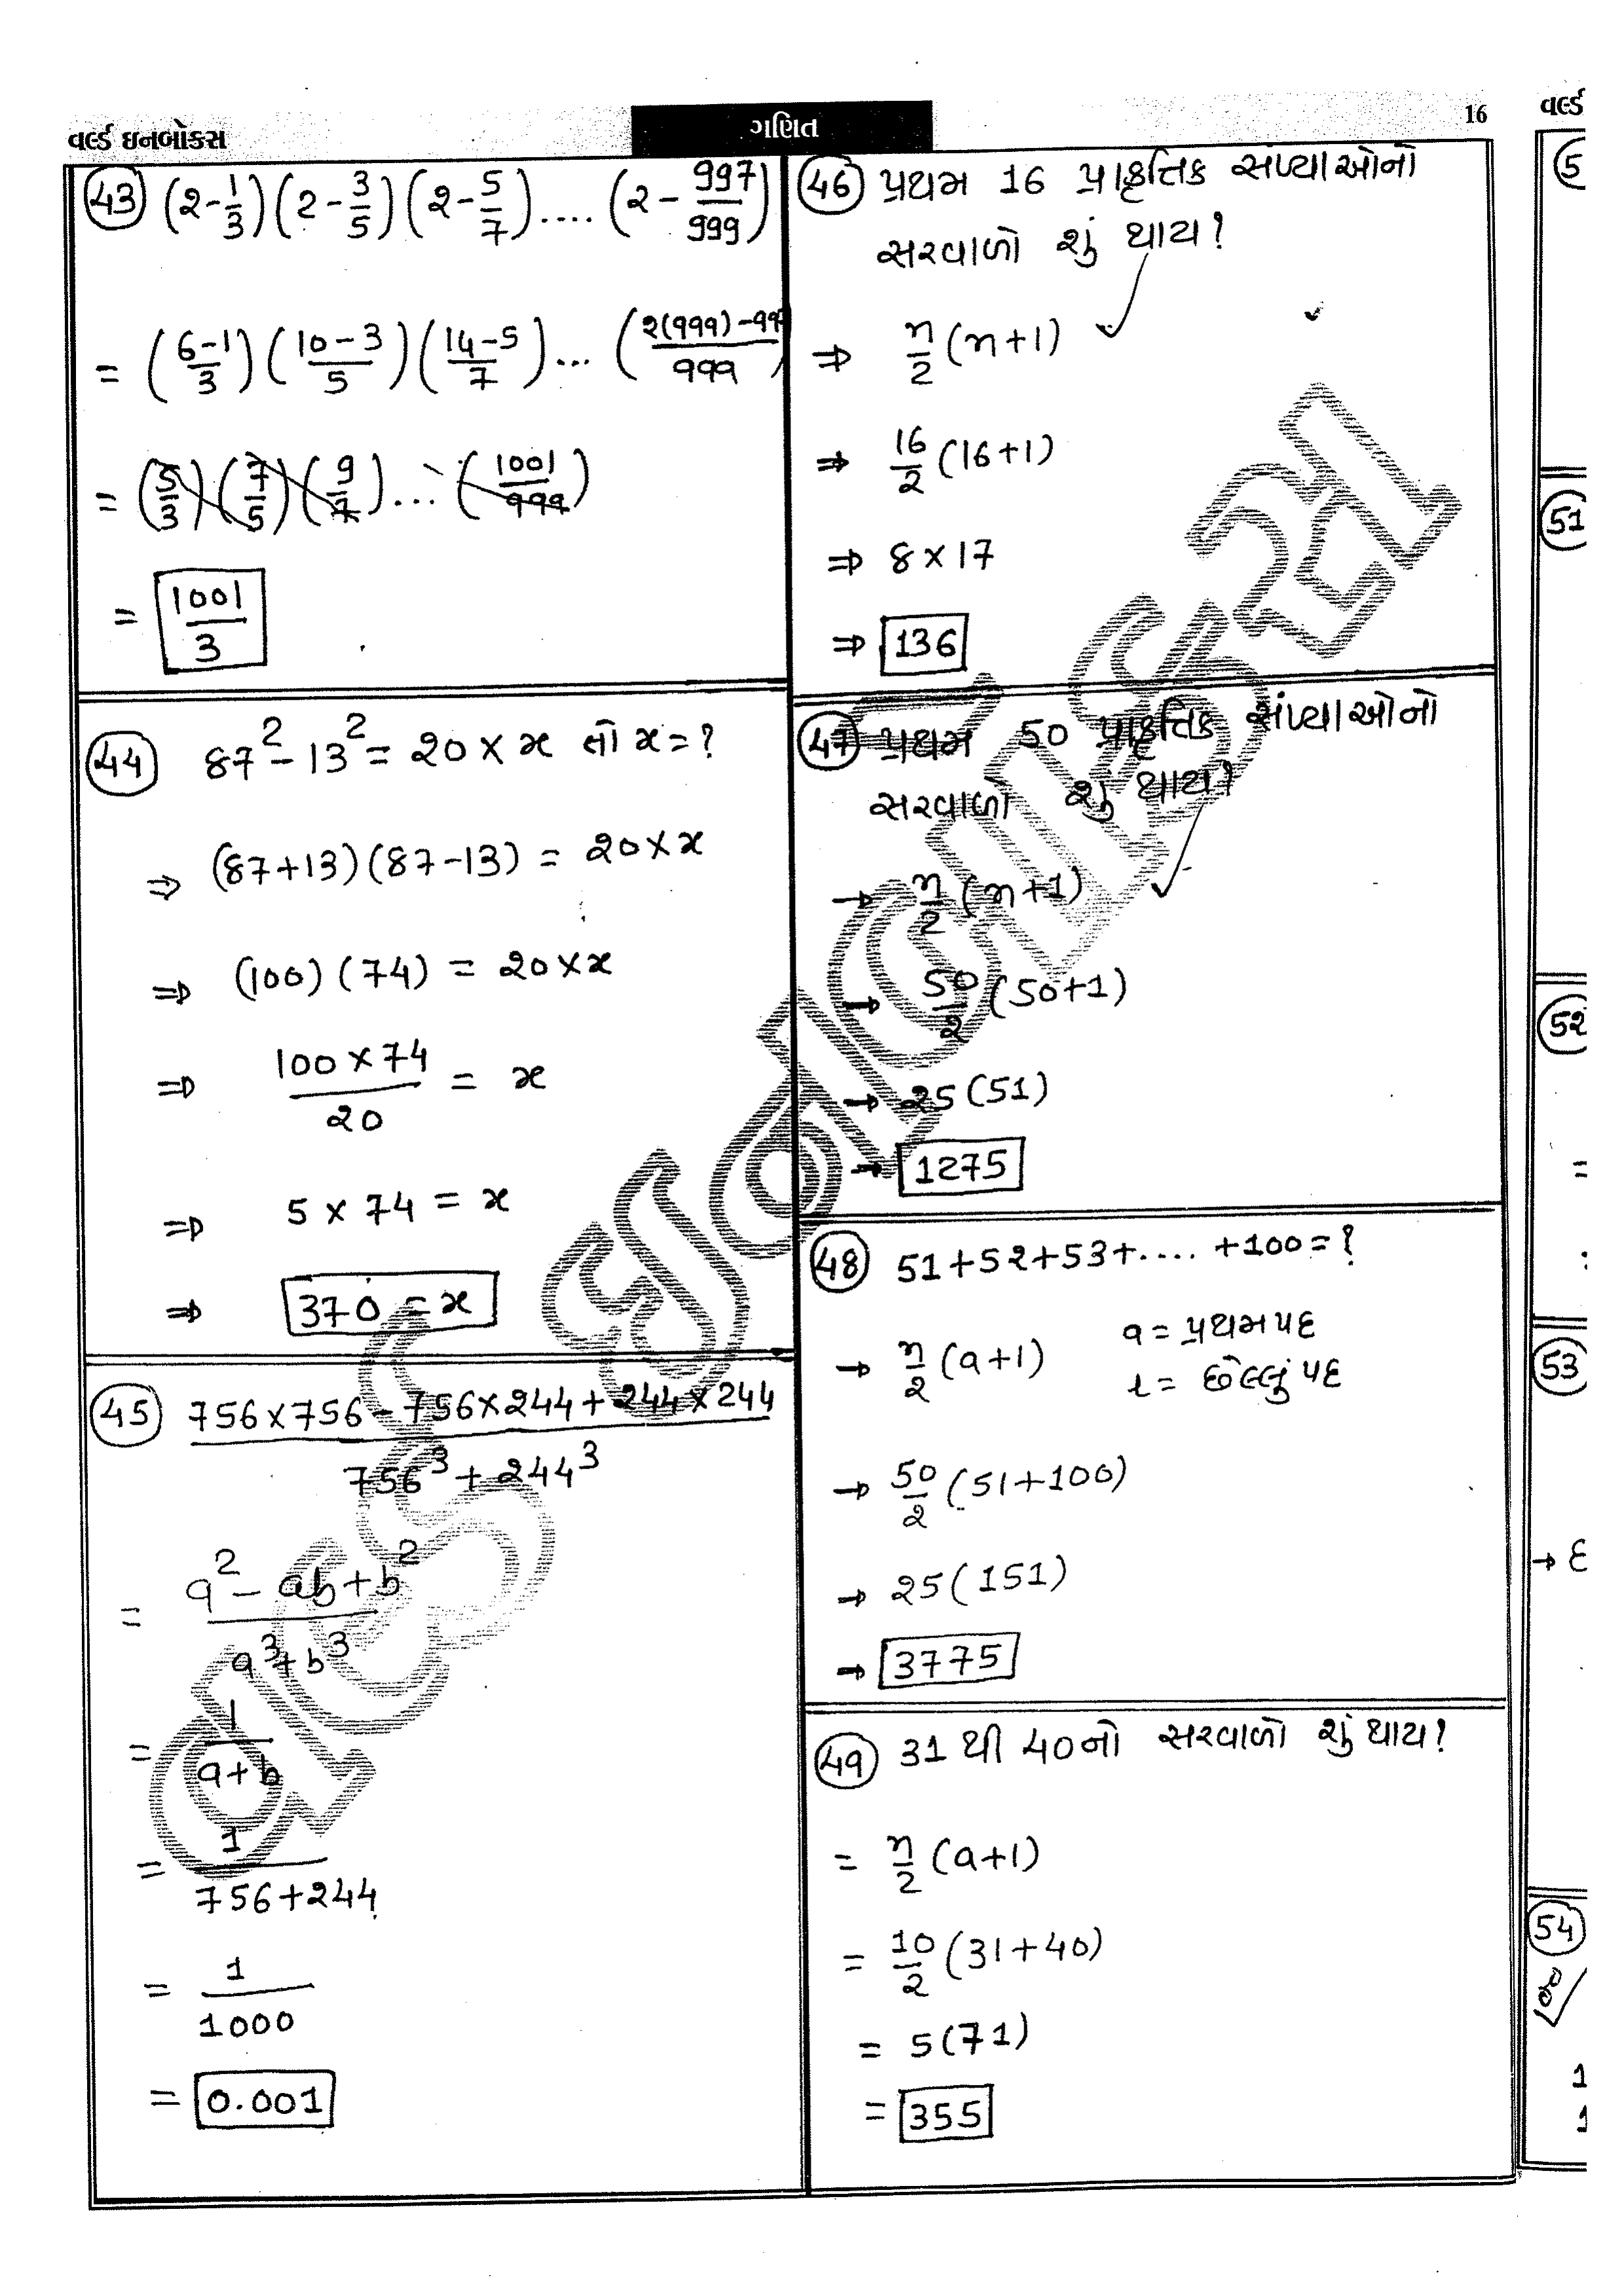 વર્લ્ડ ઇનબોક્સ
ગણિત
16
43 (2-1/3)(2-3/5)(2-5/7)....(2-997/999)
= (6-1/3)(10-3/5)(14-5/7)...
= (5/3)(7/5)(9/7)...(1001/999)
= 1001/3
44 87²-13² = 20×x તો x=?
⇒ (87+13)(87-13) = 20×x
⇒ (100)(74) = 20×x
⇒ 100×74/20 = x
⇒ 5×74 = x
⇒ 370 = x
45 756×756-756×244+244×244
756³+244³
= a²-ab+b²
a³+b³
= 1/a+b
= 1/756+244
= 1/1000
= 0.001
46 પ્રથમ 16 પ્રાકૃતિક સંખ્યાઓનો
સરવાળો શું થાય?
⇒ n/2(n+1)
⇒ 16/2(16+1)
⇒ 8×17
⇒ 136
47 પ્રથમ 50 પ્રાકૃતિક સંખ્યાઓનો
સરવાળો શું થાય?
→ n/2(n+1)
→ 50/2(50+1)
→ 25(51)
→ 1275
48 51+52+53+....+100=?
→ n/2(a+l) a = પ્રથમ પદ
l = છેલ્લું પદ
→ 50/2(51+100)
→ 25(151)
→ 3775
49 31 થી 40નો સરવાળો શું થાય?
= n/2(a+l)
= 10/2(31+40)
= 5(71)
= 355
વર્લ્ડ
51
52
53
54